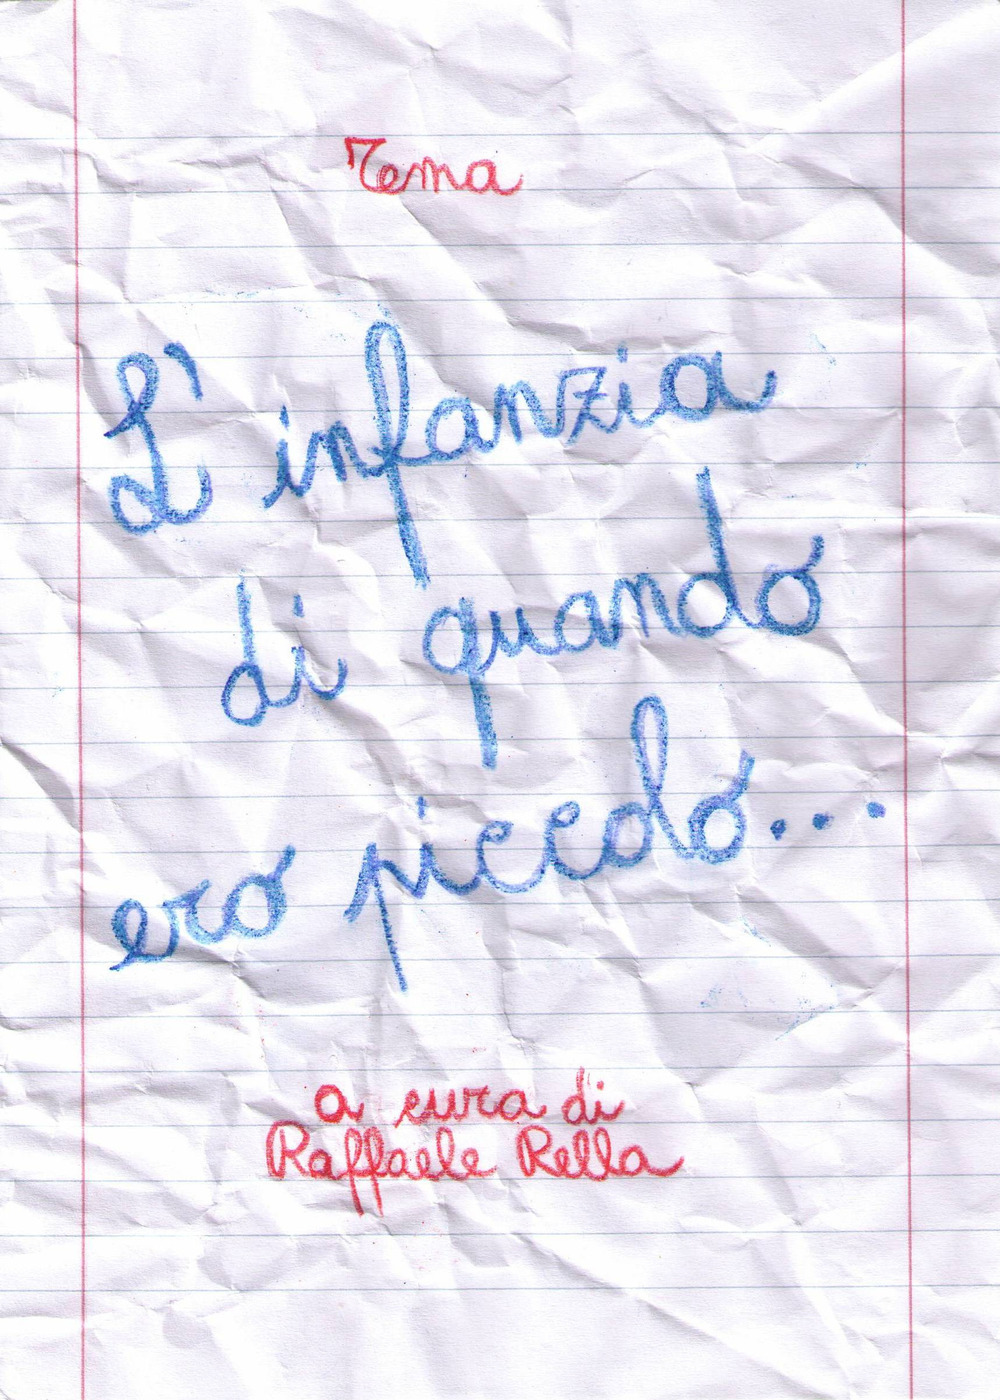 Tema
L'infanzia
di quando
ero piccolo...
a cura di
Raffaele Rella